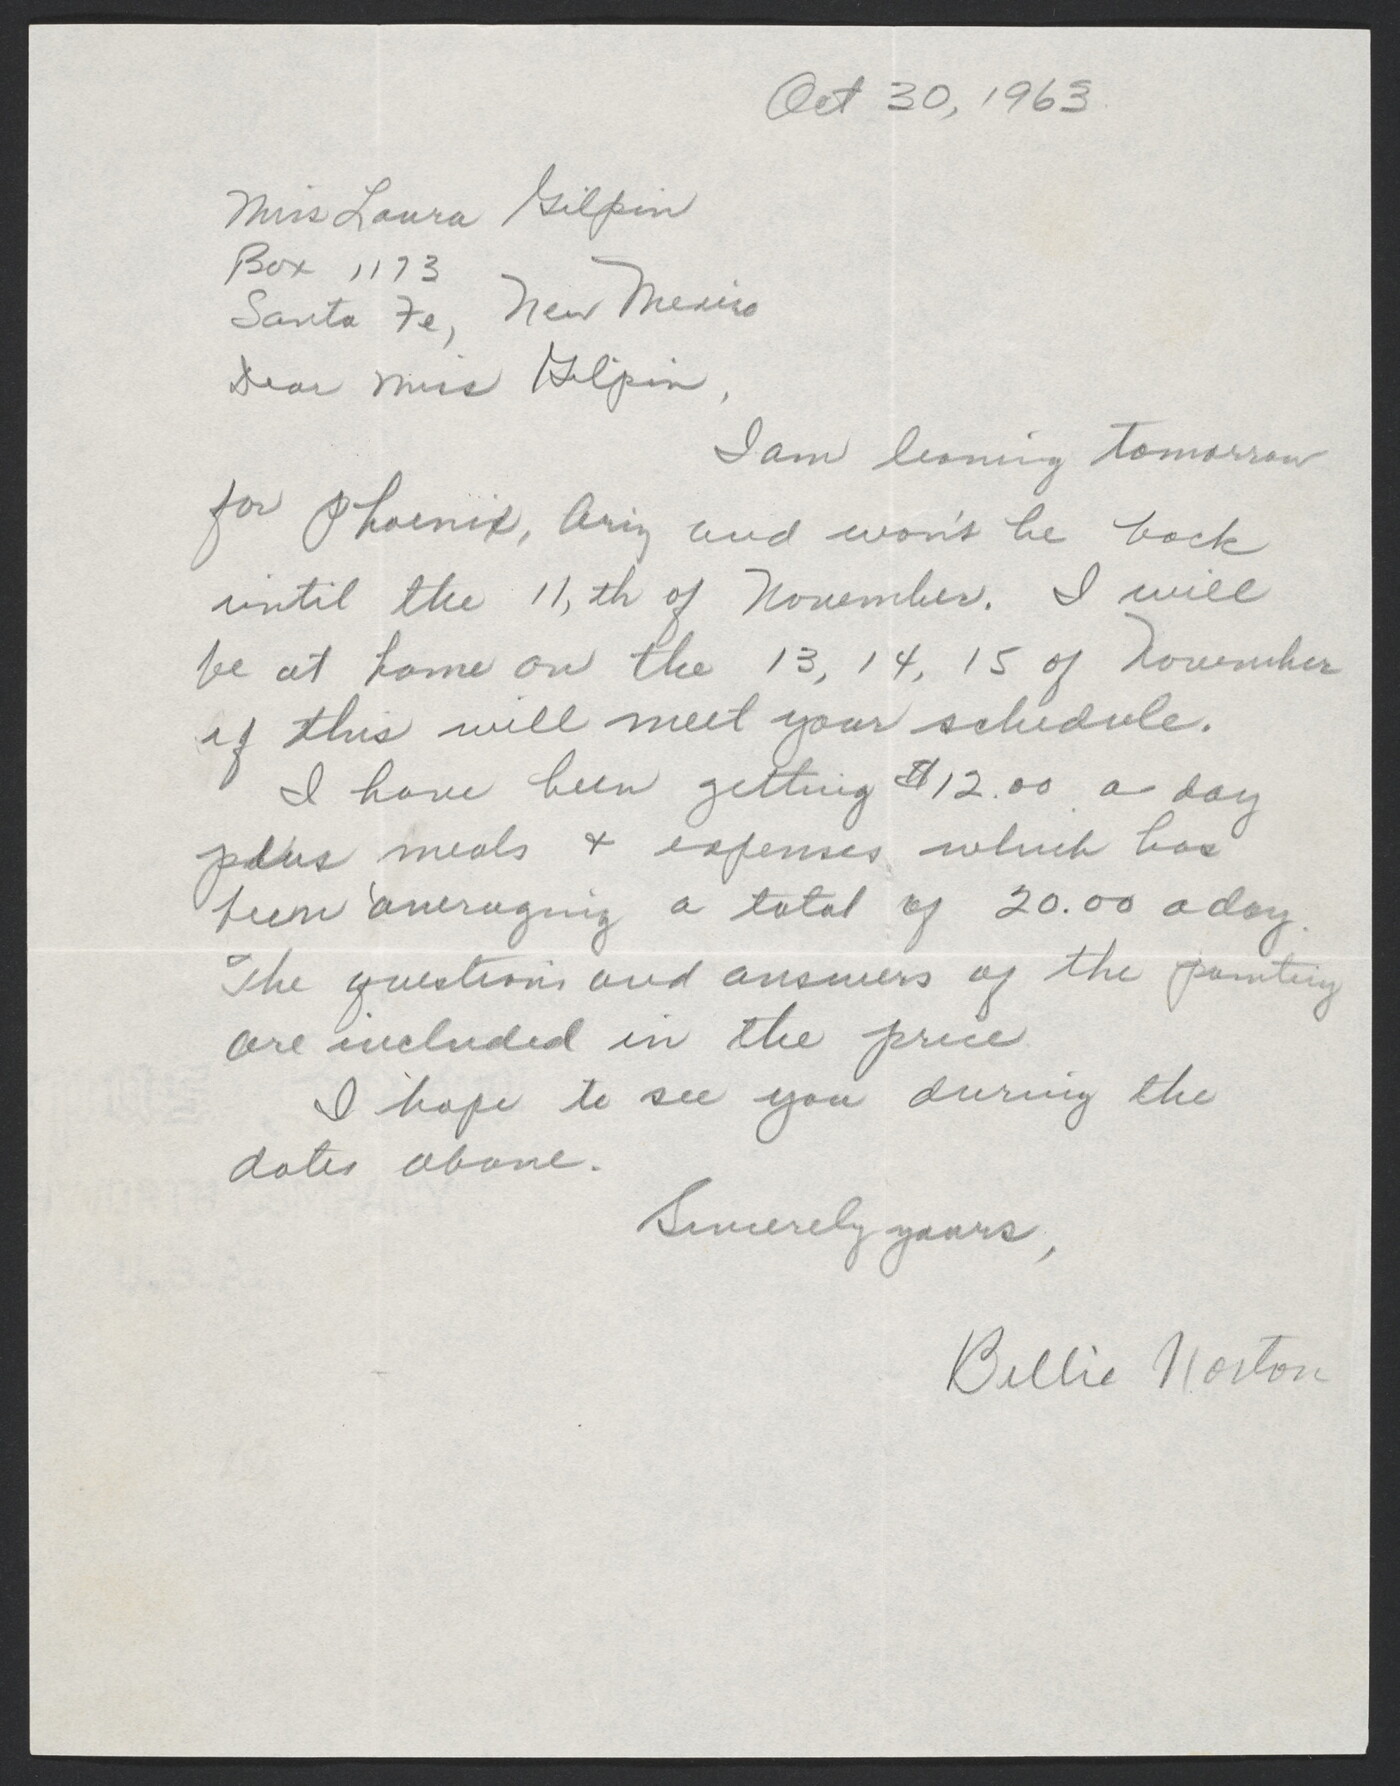 Oct 30, 1963
Miss Laura Gilpin
Box 1173
Santa Fe, New Mexico
Dear Miss Gilpin,
I am leaving tomorrow
for Phoenix, Ariz and won't be back
until the 11,th of November. I will
be at home on the 13, 14, 15 of November
if this will meet your schedule.
I have been getting $12.00 a day
plus meals & expenses which has
been averaging a total of 20.00 a day.
The questions and answers of the painting
are included in the price
I hope to see you during the
dates above.
Sincerely yours,
Billie Norton